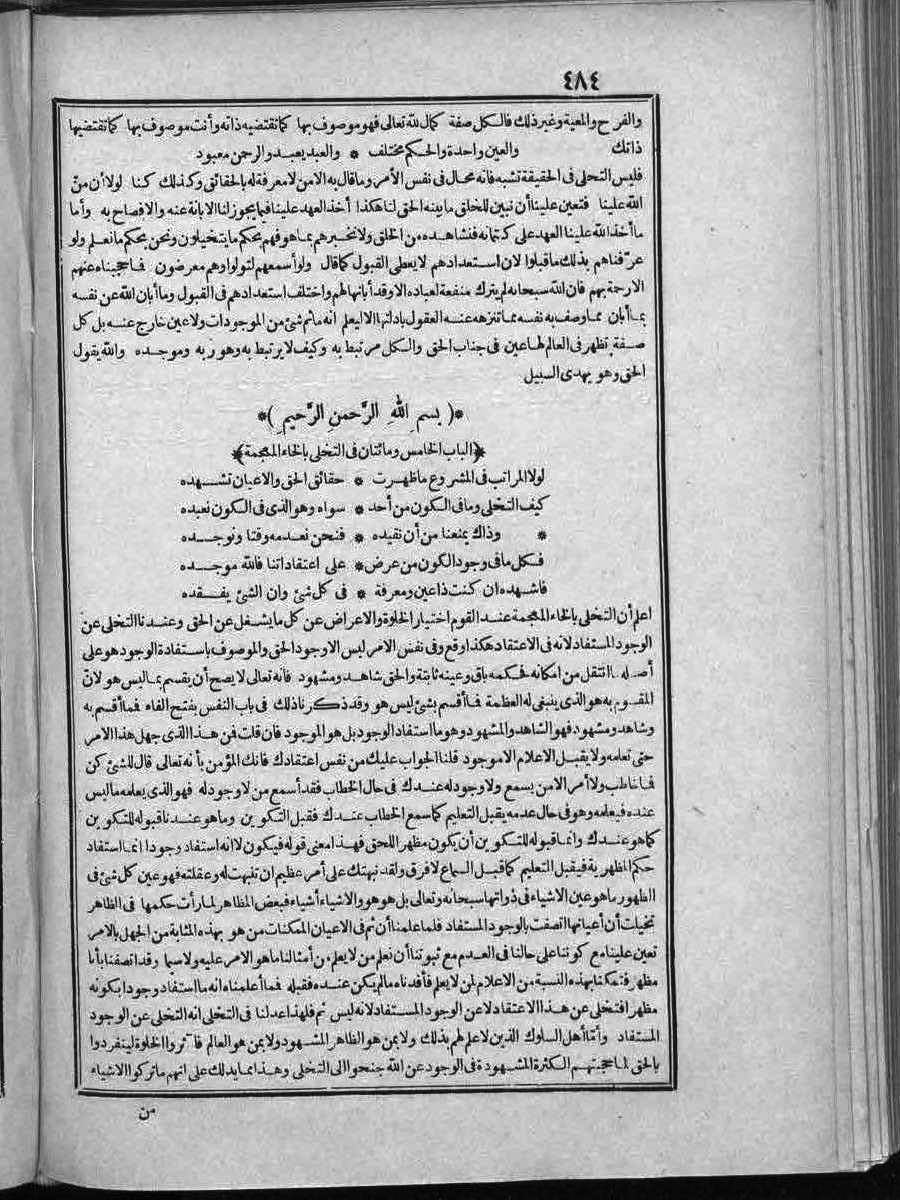 ٤٨٤
والفرح والمعية وغير ذلك فالكل صفة كمال لله تعالى فهو موصوف بها كما تقتضيه ذاته وأنت موصوف بها كما تقتضيها
ذاتك والعين واحدة والحكم مختلف * والعبد يعبد والرحمن معبود
فليس التحلى فى الحقيقة تشبه فانه محال فى نفس الأمر وما قال به الا من لا معرفة له بالحقائق وكذلك كنا لولا أن منّ
الله علينا فتعين علينا أن نبين للخلق ما بينه الحق لنا هكذا أخذ العهد علينا فيما يجوز لنا الابانة عنه والافصاح به وأما
ما أخذ الله علينا العهد على كتمانه فنشاهده من الخلق ولا نخبرهم بما هو فهم بحكم ما يتخيلون ونحن بحكم ما نعلم ولو
عرّفناهم بذلك ما قبلوا لان استعدادهم لا يعطى القبول كما قال ولو أسمعهم لتولوا وهم معرضون فما حجبناه عنهم
الا رحمة بهم فان الله سبحانه لم يترك منفعة لعباده الا وقد أبانها لهم واختلف استعدادهم فى القبول وما أبان الله عن نفسه
بما أبان مما وصف به نفسه مما تنزهه عنه العقول بأدلتها الا ليعلم انه ما ثم شئ من الموجودات ولا عين خارج عنه بل كل
صفة تظهر فى العالم لها عين فى جناب الحق والكل مرتبط به وكيف لا يرتبط به وهو ربه وموجده والله يقول
الحق وهو يهدى السبيل
*( بسم الله الرَّحمن الرَّحيم )*
﴿الباب الخامس ومائتان فى التخلى بالخاء المعجمة﴾
لولا المراتب فى المشروع ما ظهرت * حقائق الحق والاعيان تشهده
كيف التخلى وما فى الكون من أحد * سواه وهو الذى فى الكون نعبده
* وذاك يمنعنا من أن نقيده * فنحن نعدمه وقتا ونوجده
فكل ما فى وجود الكون من عرض * على اعتقاداتنا فالله موجده
فاشهده ان كنت ذا عين ومعرفة * فى كل شئ وان الشئ يفقده
اعلم أن التخلى بالخاء المعجمة عند القوم اختيار الخلوة والاعراض عن كل ما يشغل عن الحق وعندنا التخلى عن
الوجود المستفاد لانه فى الاعتقاد هكذا وقع وفى نفس الامر ليس الا وجود الحق والموصوف باستفادة الوجود هو على
أصله ما انتقل من امكانه فحكمه باق وعينه ثابتة والحق شاهد ومشهود فانه تعالى لا يصح أن يقسم بما ليس هو لانّ
المقسوم به هو الذى ينبغى له العظمة فما أقسم بشئ ليس هو وقد ذكرنا ذلك فى باب النفس بفتح الفاء فما أقسم به
وشاهد ومشهود فهو الشاهد والمشهود وهو ما استفاد الوجود بل هو الموجود فان قلت فمن هذا الذى جهل هذا الامر
حتى تعلمه ولا يقبل الاعلام الا موجود قلنا الجواب عليك من نفس اعتقادك فانك المؤمن بأنه تعالى قال للشئ كن
فما خاطب ولا أمر الا من يسمع ولا وجود له عندك فى حال الخطاب فقد أسمع من لا وجود له فهو الذى يعلمه ما ليس
عنده فيعلمه وهو فى حال عدمه يقبل التعليم كما سمع الخطاب عندك فقبل التكوين وما هو عندنا قبوله للتكوين
كما هو عندك وانما قبوله للتكوين أن يكون مظهر اللحق فهذا معنى قوله فيكون لا انه استفاد وجودا انما استفاد
حكم المظهرية فيقبل التعليم كما قبل السماع لا فرق ولقد نبهتك على أمر عظيم ان تنبهت له وعقلته فهو عين كل شئ فى
الظهور ما هو عين الاشياء فى ذواتها سبحانه وتعالى بل هو هو والاشياء أشياء فبعض المظاهر لما رأت حكمها فى الظاهر
تخيلت أن أعيانها اتصفت بالوجود المستفاد فلما علمنا أن ثم فى الاعيان الممكنات من هو بهذه المثابة من الجهل بالامر
تعين علينا مع كوننا على حالنا فى العدم مع ثبوتنا أن نعلم من لا يعلم من أمثالنا ما هو الامر عليه ولا سيما وقد اتصفنا بأنا
مظهر فتمكنا بهذه النسبة من الاعلام لمن لا يعلم فأفدناه ما لم يكن عنده فقبله فما أعلمناه انه ما استفاد وجودا بكونه
مظهرا فتخلى عن هذا الاعتقاد لا عن الوجود المستفاد لانه ليس ثم فلهذا عدلنا فى التخلى انه التخلى عن الوجود
المستفاد وأما أهل السلوك الذين لا علم لهم بذلك ولا بمن هو الظاهر المشهود ولا بمن هو العالم فآثروا الخلوة لينفردوا
بالحق لما حجبتهم الكثرة المشهودة فى الوجود عن الله جنحوا الى التخلى وهذا مما يدلك على انهم ما تركوا الاشياء
من